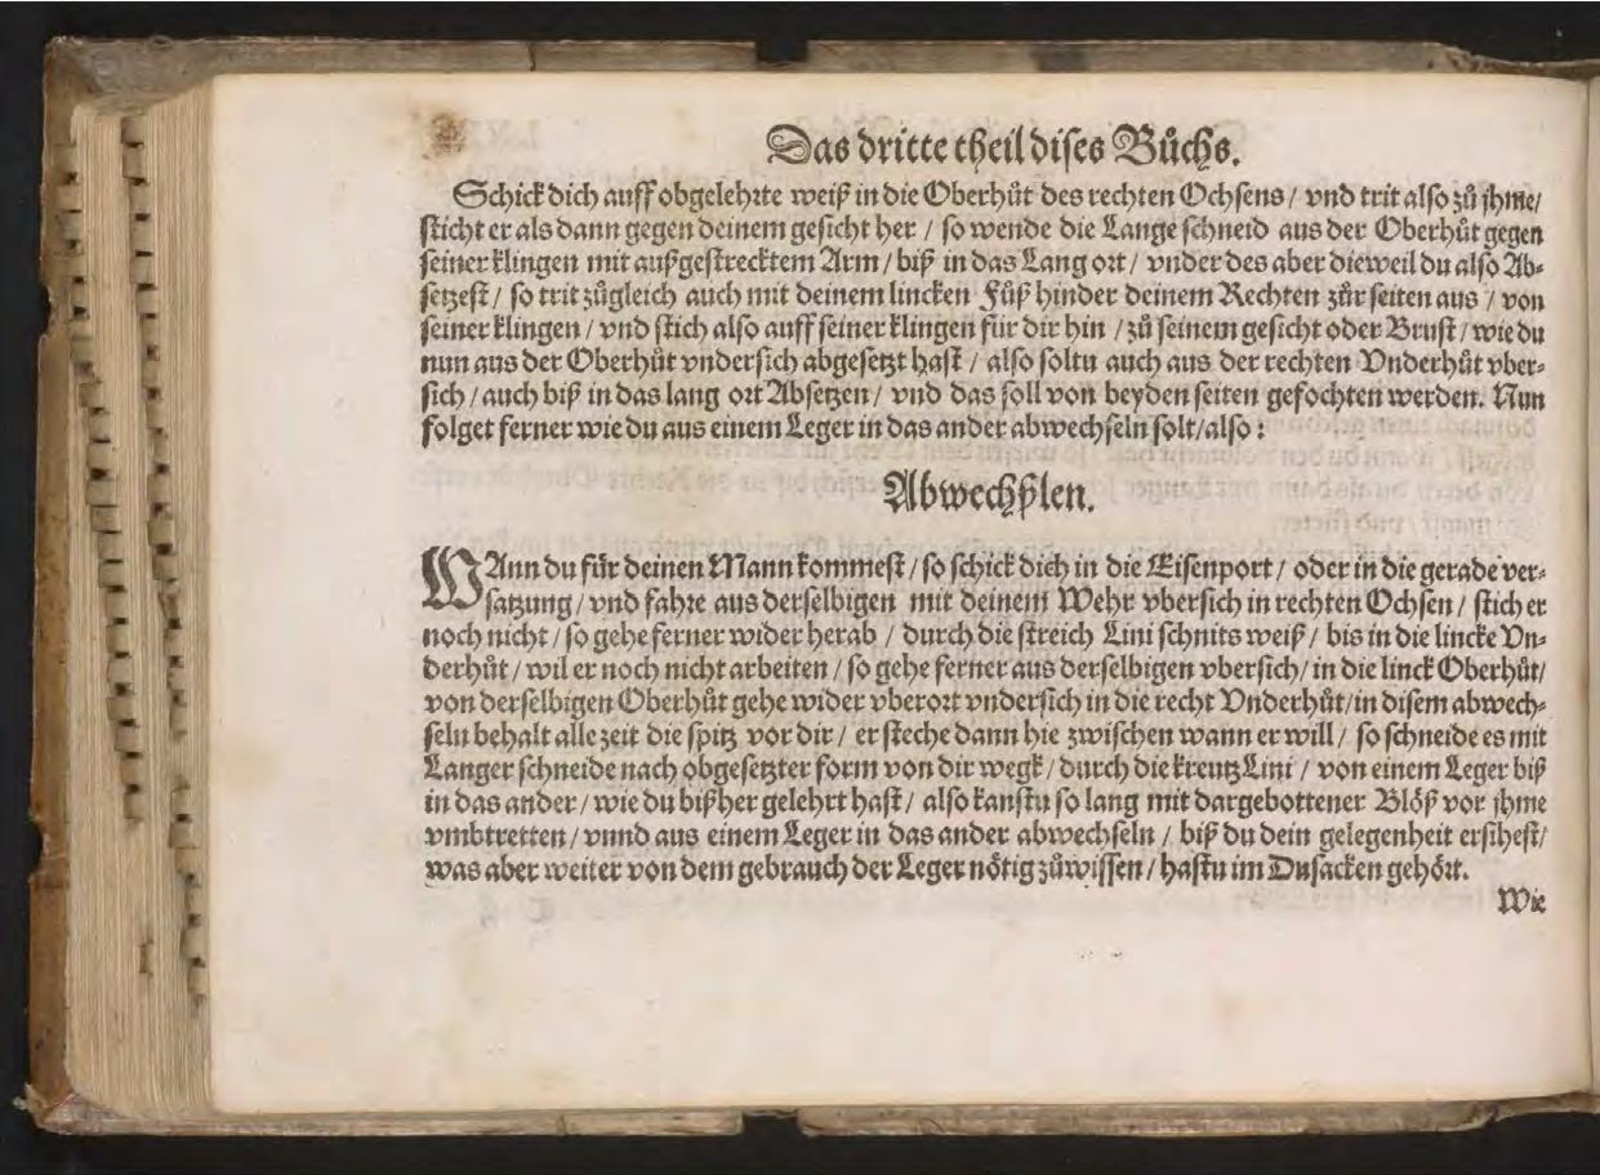 Das dritte theil dises Bůchs.
Schick dich auff obgelehrte weiß in die Oberhůt des rechten Ochsens / vnd trit also zů jhme/
sticht er als dann gegen deinem gesicht her / so wende die Lange schneid aus der Oberhůt gegen
seiner klingen mit außgestrecktem Arm / biß in das Lang ort / vnder des aber dieweil du also Ab⸗
setzest / so trit zůgleich auch mit deinem lincken Fůß hinder deinem Rechten zůr seiten aus / von
seiner klingen / vnd stich also auff seiner klingen für dir hin / zů seinem gesicht oder Brust / wie du
nun aus der Oberhůt vndersich abgesetzt hast / also soltu auch aus der rechten Vnderhůt vber⸗
sich / auch biß in das lang ort Absetzen / vnd das soll von beyden seiten gefochten werden. Nun
folget ferner wie du aus einem Leger in das ander abwechseln solt/also:
Abwechßlen.
WAnn du für deinen Mann kommest / so schick dich in die Eisenport / oder in die gerade ver⸗
satzung / vnd fahre aus derselbigen mit deinem Wehr vbersich in rechten Ochsen / stich er
noch nicht / so gehe ferner wider herab / durch die streich Lini schnits weiß / bis in die lincke Vn⸗
derhůt / wil er noch nicht arbeiten / so gehe ferner aus derselbigen vbersich / in die linck Oberhůt/
von derselbigen Oberhůt gehe wider vberort vndersich in die recht Vnderhůt/in disem abwech⸗
seln behalt alle zeit die spitz vor dir / er steche dann hie zwischen wann er will / so schneide es mit
Langer schneide nach obgesetzter form von dir wegk / durch die kreutz Lini / von einem Leger biß
in das ander / wie du bißher gelehrt hast / also kanstu so lang mit dargebottener Blöß vor jhme
vmbtretten / vnnd aus einem Leger in das ander abwechseln / biß du dein gelegenheit ersihest/
was aber weiter von dem gebrauch der Leger nötig zůwissen / hastu im Dusacken gehört.
Wie